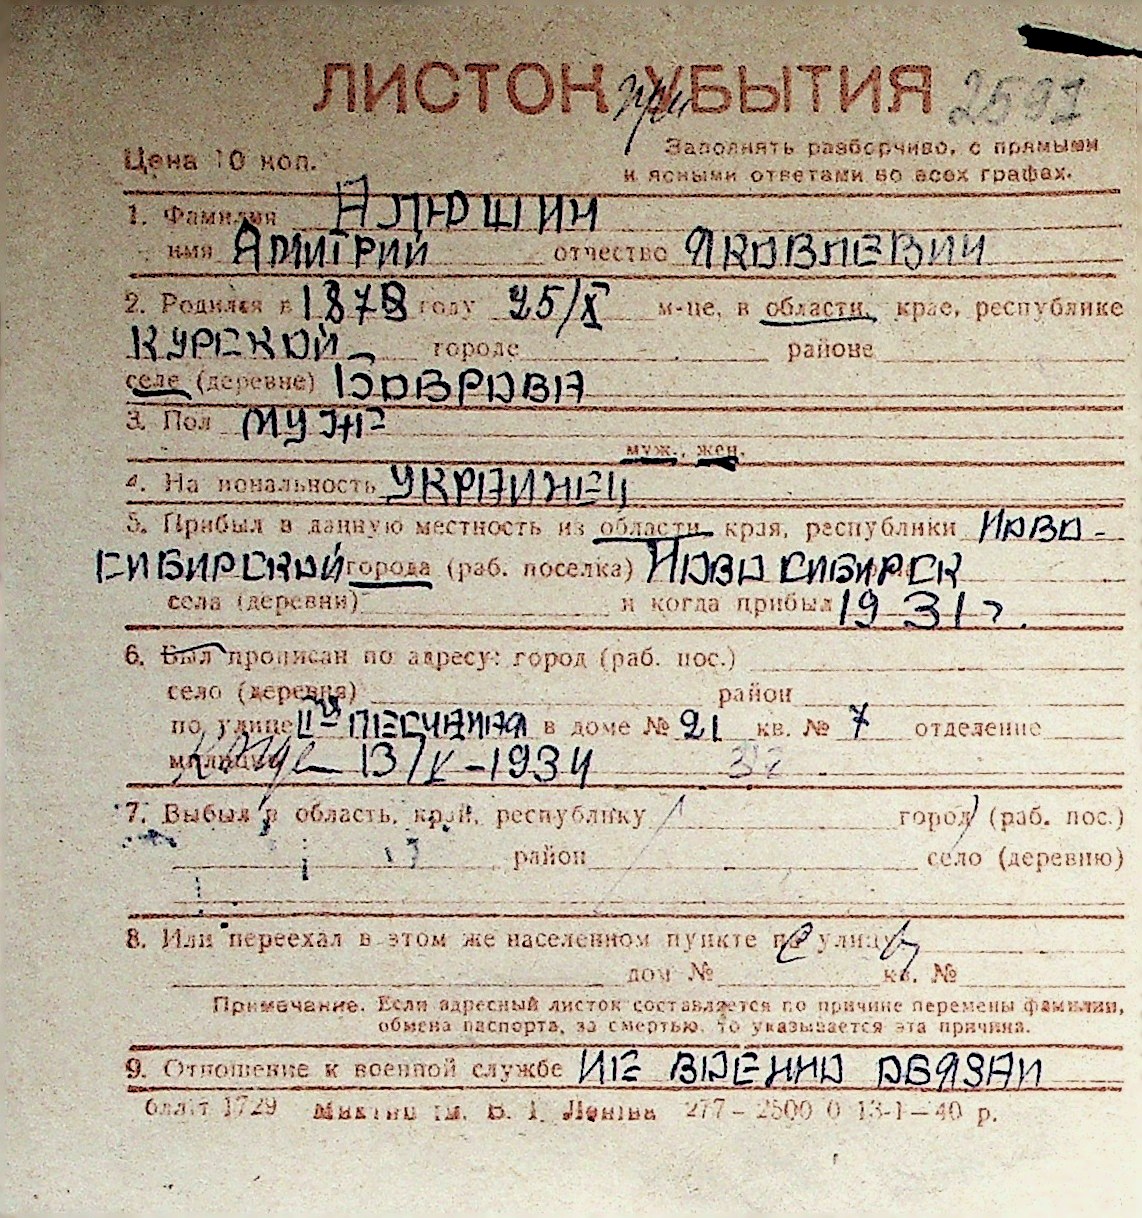 ЛИСТОК при УБЫТИЯ 2591
Цена 10 коп.
Заполнять разборчиво, с прямыми
и ясными ответами во всех графах.
1. Фамилия АЛЮШИН
имя ДМИТРИЙ отчество ЯКОВЛЕВИЧ
2. Родился в 1878 году 25/X м-це, в области, крае, республике
КУРСКОЙ городе районе
селе (деревне) БОВРОВА
3. Пол МУЖ
муж., жен.
4. На иональность УКРАИНЕЦ
5. Прибыл в данную местность из области края, республики НОВО-
СИБИРСКОЙ города (раб. поселка) НОВОСИБИРСК
села (деревни) и когда прибыл 1931 г.
6. Был прописан по адресу: город (раб. пос.)
село (деревня) район
по улице II ПЕСЧАННАЯ в доме № 21 кв. № 7 отделение
милиции 13/V-1934
7. Выбыл в область, край, республику город (раб. пос.)
район село (деревню)
8. Или переехал в этом же населенном пункте по улицу
дом № кв. №
Примечание. Если адресный листок составляется по причине перемены фамилии,
обмена паспорта, за смертью, то указывается эта причина.
9. Отношение к военной службе НЕ ВОЕННО ОБЯЗАН
1729 им. В. И. Ленина 277-2500 0 13-1-40 р.